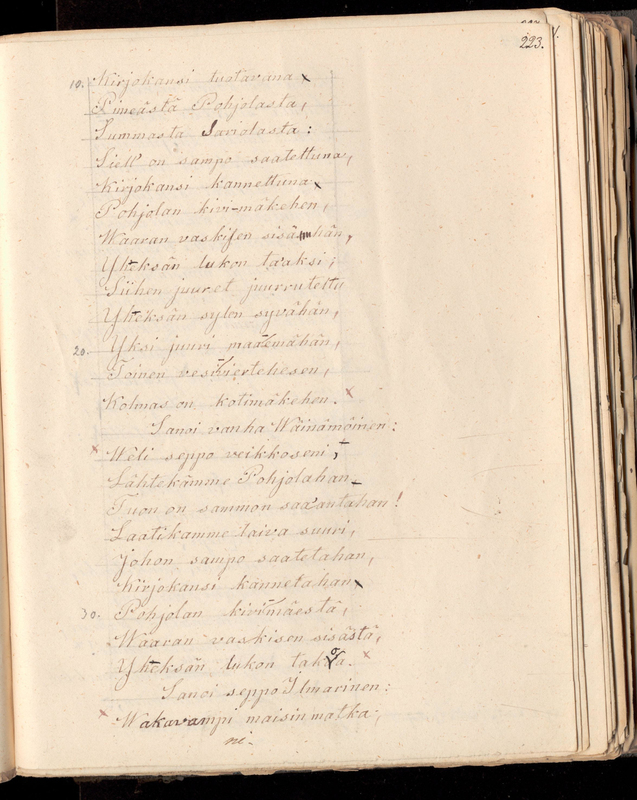 223.
10. Kirjokansi tuotavana
Pimeästä Pohjolasta,
Summasta Sariolasta:
Siell' on sampo saatettuna,
Kirjokansi kannettuna
Pohjolan kivi-mäkehen,
Waaran vaskisen sisähän,
Yheksän lukon taaksi;
Siihen juuret juurruteltu
Yheksän sylen syvähän,
20. Yksi juuri maaemähän,
Toinen vesiviertehesen,
Kolmas on kotimäkehen.
Sanoi vanha Wäinämöinen:
Weli seppo veikkoseni,
Lähtekämme Pohjolahan
Tuon on sammon saa'antahan!
Laatikamme laiva suuri,
Johon sampo saatetahan,
Kirjokansi kannetahan
30. Pohjolan kivimäestä,
Waaran vaskisen sisästä,
Yheksän lukon takoa.
Sanoi seppo Ilmarinen:
Wakavampi maisin matka,
ni-